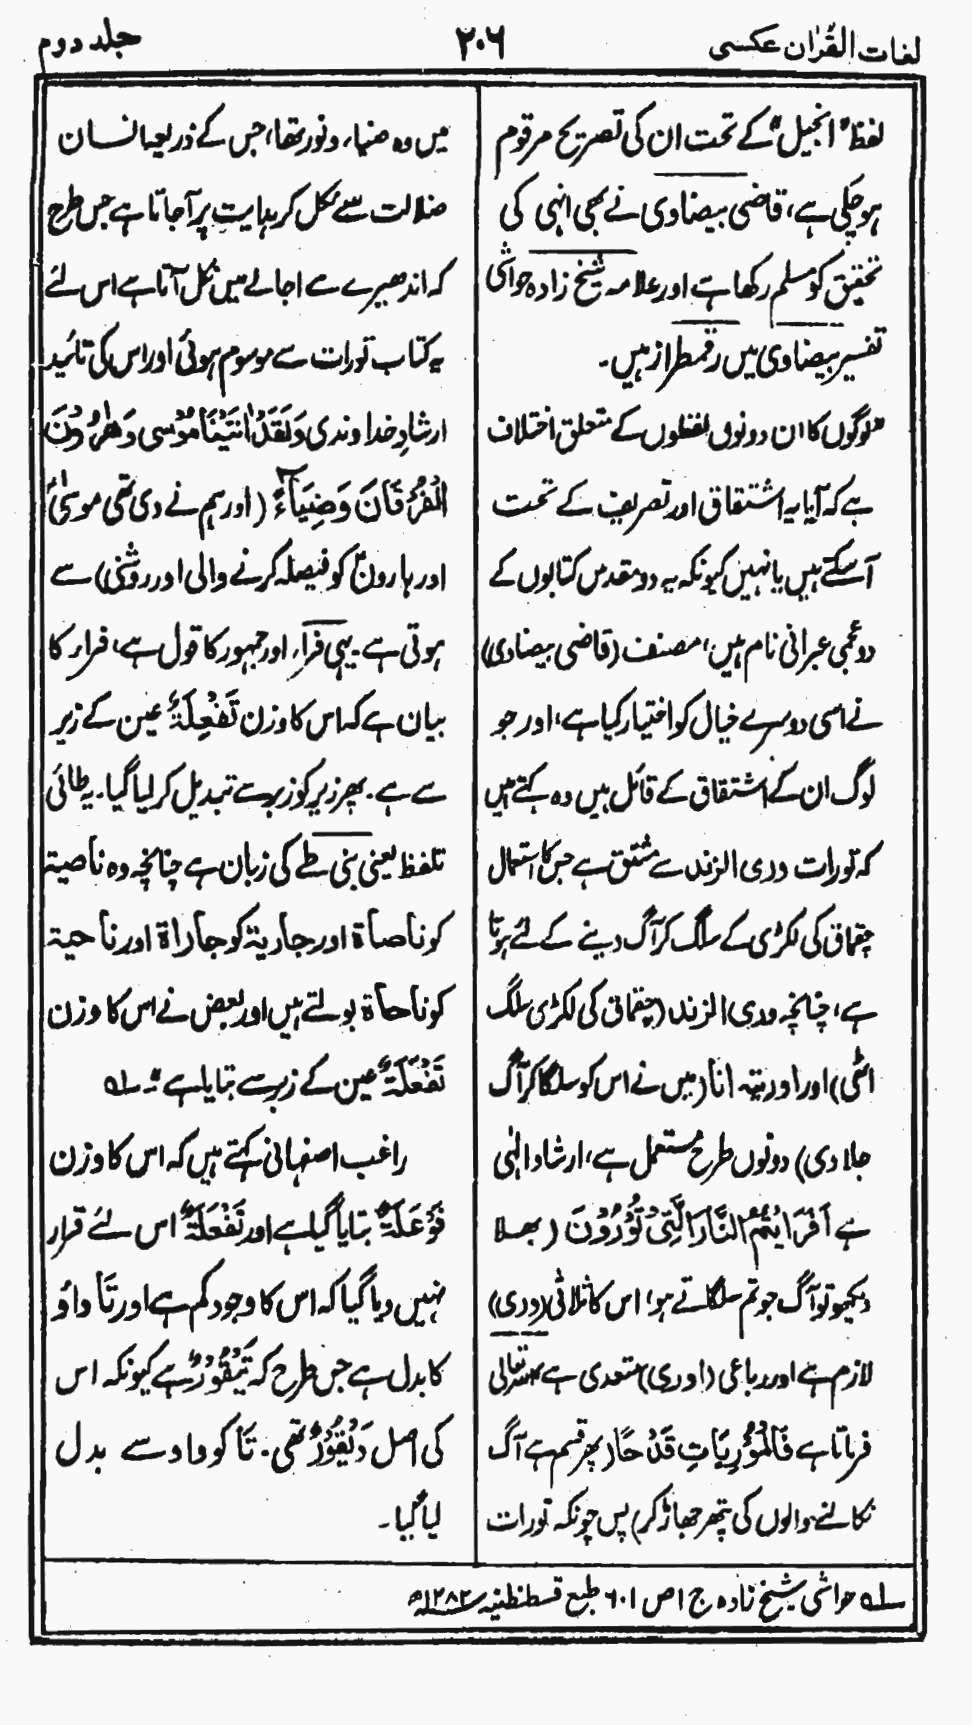 لغات القرآن عکسی
۲۰۶
جلد دوم
لفظ "انجیل" کے تحت ان کی تصریح مرقوم
ہوچکی ہے، قاضی بیضاوی نے بھی انہی کی
تحقیق کو مسلم رکھا ہے اور علامہ شیخ زادہ حواشی
تفسیر بیضاوی میں رقمطراز ہیں۔
"لوگوں کا ان دونوں لفظوں کے متعلق اختلاف
ہے کہ آیا یہ اشتقاق اور تصریف کے تحت
آسکتے ہیں یا نہیں کیونکہ یہ دو مقدس کتابوں کے
دو عجمی عبرانی نام ہیں، مصنف (قاضی بیضاوی)
نے اسی دوسرے خیال کو اختیار کیا ہے، اور جو
لوگ ان کے اشتقاق کے قائل ہیں وہ کہتے ہیں
کہ تورات وری الزند سے مشتق ہے جس کا استعمال
چقماق کی لکڑی کے سلگ کر آگ دینے کے لئے ہوتا
ہے، چنانچہ وری الزند (چقماق کی لکڑی سلگ
اٹھی) اور اوریتہ انا (میں نے اس کو سلگا کر آگ
جلا دی) دونوں طرح مستعمل ہے، ارشاد الٰہی
ہے اَفَرَاَیْتُمُ النَّارَ الَّتِیْ تُوْرُوْنَ (بھلا
دیکھو تو آگ جو تم سلگاتے ہو، اس کا ثلاثی (وری)
لازم ہے اور رباعی (اوری) متعدی ہے اللہ تعالی
فرماتا ہے فَالْمُوْرِیَاتِ قَدْحًا (پھر قسم ہے آگ
نکالنے والوں کی پتھر جھاڑ کر) پس چونکہ تورات
میں وہ ضیاء و نور تھا، جس کے ذریعہ انسان
ضلالت سے نکل کر ہدایت پر آجاتا ہے جس طرح
کہ اندھیرے سے اجالے میں نکل آتا ہے اس لئے
یہ کتاب تورات سے موسوم ہوئی اور اس کی تائید
ارشادِ خداوندی وَلَقَدْ اٰتَیْنَا مُوْسٰی وَهٰرُوْنَ
الْفُرْقَانَ وَضِیَآءً (اور ہم نے دی تھی موسیٰؑ
اور ہارونؑ کو فیصلہ کرنے والی اور روشنی) سے
ہوتی ہے۔ یہی فراء اور جمہور کا قول ہے، فراء کا
بیان ہے کہ اس کا وزن تَفْعِلَةٌ عین کے زیر
سے ہے۔ پھر زیر کو زبر سے تبدیل کر لیا گیا۔ یہ طائی
تلفظ یعنی بنی طے کی زبان ہے چنانچہ وہ ناصیة
کو ناصاة اور جاریة کو جاراة اور ناحیة
کو ناحاة بولتے ہیں اور بعض نے اس کا وزن
تَفْعَلَةٌ عین کے زبر سے بتایا ہے"۔ لہ
راغب اصفہانی کہتے ہیں کہ اس کا وزن
فَوْعَلَةٌ بتایا گیا ہے اور تَفْعَلَةٌ اس لئے قرار
نہیں دیا گیا کہ اس کا وجود کم ہے اور تَا واوَ
کا بدل ہے جس طرح کہ تَیْقُوْرٌ ہے کیونکہ اس
کی اصل وَیْقُوْرٌ تھی۔ تَا کو واو سے بدل
لیا گیا۔
لہ حواشی شیخ زادہ ج ۱ ص ۶۰۱ طبع قسطنطنیہ ۱۲۸۲ھ